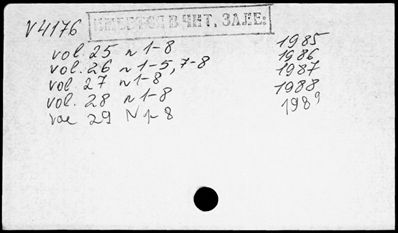 V4176 ИМЕЕТСЯ В ЧИТ. ЗАЛЕ:
vol. 25 N 1-8 1985
vol. 26 N 1-5, 7-8 1986
vol. 27 N 1-8 1987
vol. 28 N 1-8 1988
vol 29 N 1-8 1989